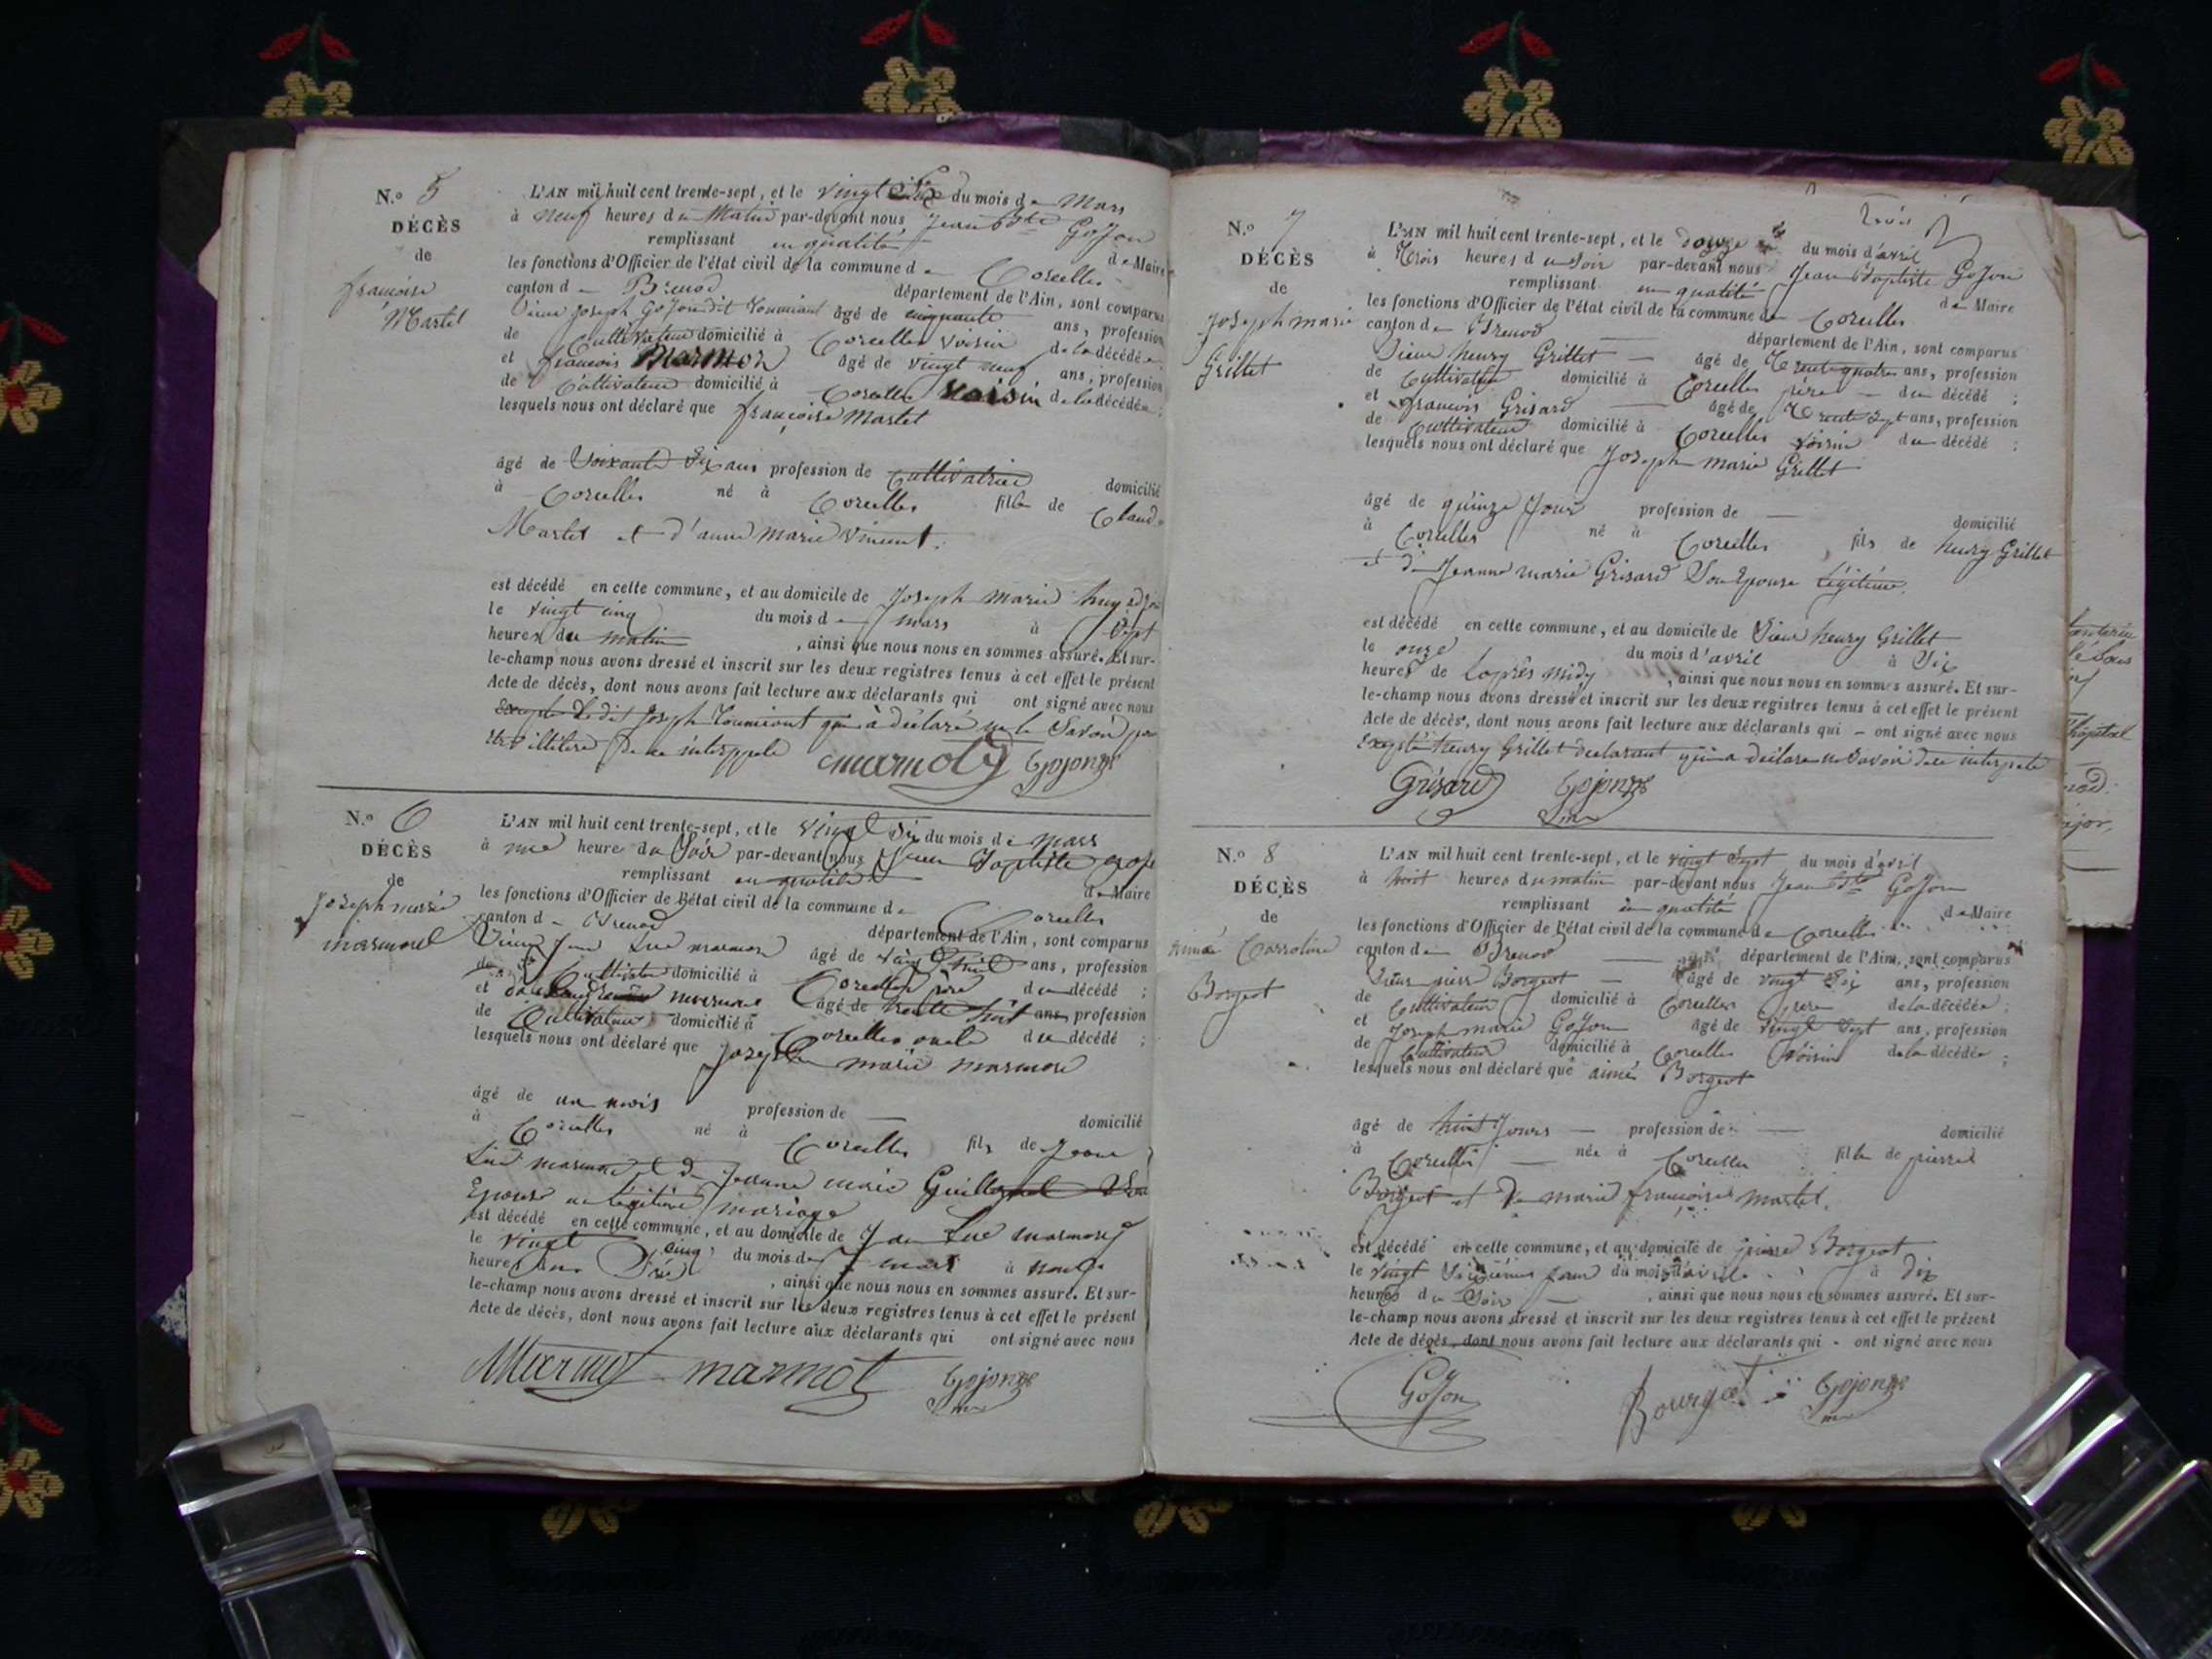 N.º 5
DÉCÈS
de
françoise
Martel
L'AN mil huit cent trente-sept, et le vingt Six du mois de Mars
à neuf heures du Matin par-devant nous Jean Bte GoJon
remplissant en qualité de Maire
les fonctions d'Officier de l'état civil de la commune de Corcelles
canton de Brenod département de l'Ain, sont comparus
Sieur Joseph GoJon dit âgé de cinquante ans, profession
de Cultivateur domicilié à Corcelles voisin de la décédée
et françois Marmon âgé de vingt neuf ans, profession
de Cultivateur domicilié à Corcelles voisin de la décédée ;
lesquels nous ont déclaré que françoise Martel
âgé de Soixante Six ans profession de Cultivatrice domicilié
à Corcelles né à Corcelles fille de Claude
Martel et d'anne marie Vincent.
est décédé en cette commune, et au domicile de Joseph Marie
le vingt cinq du mois de mars à Sept
heures du matin, ainsi que nous nous en sommes assuré. Et sur-
le-champ nous avons dressé et inscrit sur les deux registres tenus à cet effet le présent
Acte de décès, dont nous avons fait lecture aux déclarants qui ont signé avec nous
Excepté Ledit Joseph qui à déclaré ne le Savoir pour
être illitéré de ce interppelé
marmot Gojon
N.º 6
DÉCÈS
de
Joseph marie
marmont
L'AN mil huit cent trente-sept, et le vingt Six du mois de mars
à une heure du Soir par-devant nous Jean Baptiste
remplissant en qualité de Maire
les fonctions d'Officier de l'état civil de la commune de Corcelles
canton de Brenod département de l'Ain, sont comparus
Sieur Jean Luc marmon âgé de ans, profession
de Cultivateur domicilié à Corcelles père du décédé ;
et âgé de trente huit ans profession
de Cultivateur domicilié à Corcelles oncle du décédé ;
lesquels nous ont déclaré que Joseph marie marmon
âgé de un mois profession de — domicilié
à Corcelles né à Corcelles fils de Jean
Luc marmon et de Jeanne marie Son
Epouse en légitime mariage
est décédé en cette commune, et au domicile de Jean Luc marmon
le vingt cinq du mois de mars à
heures du Soir, ainsi que nous nous en sommes assuré. Et sur-
le-champ nous avons dressé et inscrit sur les deux registres tenus à cet effet le présent
Acte de décès, dont nous avons fait lecture aux déclarants qui ont signé avec nous
Marmot marmot Gojon
N.º 7
DÉCÈS
de
Joseph marie
Grillet
L'AN mil huit cent trente-sept, et le douze du mois d'avril
à Trois heures du Soir par-devant nous Jean Baptiste GoJon
remplissant en qualité de Maire
les fonctions d'Officier de l'état civil de la commune de Corcelles
canton de Brenod département de l'Ain, sont comparus
Sieur henry Grillet — âgé de Trente quatre ans, profession
de Cultivateur domicilié à Corcelles père — du décédé ;
et françois Grisard — âgé de Trente Sept ans, profession
de Cultivateur domicilié à Corcelles voisin du décédé ;
lesquels nous ont déclaré que Joseph Marie Grillet
âgé de quinze Jour profession de — domicilié
à Corcelles né à Corcelles, fils de henry Grillet
et de Jeanne marie Grisard Son Epouse légitime.
est décédé en cette commune, et au domicile de Sieur henry Grillet
le onze du mois d'avril à Six
heures de laprès midy, ainsi que nous nous en sommes assuré. Et sur-
le-champ nous avons dressé et inscrit sur les deux registres tenus à cet effet le présent
Acte de décès, dont nous avons fait lecture aux déclarants qui - ont signé avec nous
Excepté henry Grillet declarant qui a déclaré ne Savoir de ce interpelé
Grisard Gojon
N.º 8
DÉCÈS
de
Aimée Carroline
Borgeot
L'AN mil huit cent trente-sept, et le vingt Sept du mois d'avril
à huit heures du matin par-devant nous Jean Bte GoJon
remplissant en qualité de Maire
les fonctions d'Officier de l'état civil de la commune de Corcelles
canton de Brenod — département de l'Ain, sont comparus
Sieur pierre Borgeot — âgé de vingt Six ans, profession
de Cultivateur domicilié à Corcelles pere de la décédée ;
et Joseph marie GoJon âgé de vingt Sept ans, profession
de Cultivateur domicilié à Corcelles Voisin de la décédée ;
lesquels nous ont déclaré que aimée Borgeot
âgé de huit Jours — profession de — domicilié
à Corcelles — née à Corcelles fille de pierre
Borgeot et De marie françoise martel.
est décédé en cette commune, et au domicile de pierre Borgeot
le vingt Sixième jour du mois d'avril à dix
heures du Soir —, ainsi que nous nous en sommes assuré. Et sur-
le-champ nous avons dressé et inscrit sur les deux registres tenus à cet effet le présent
Acte de décès, dont nous avons fait lecture aux déclarants qui - ont signé avec nous
GoJon Bourgeot Gojon